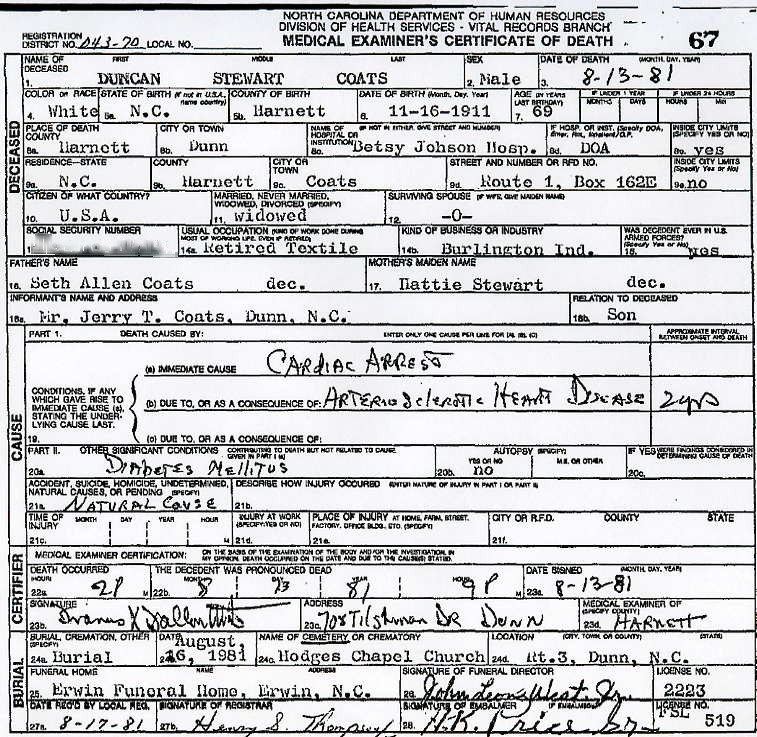 NORTH CAROLINA DEPARTMENT OF HUMAN RESOURCES
DIVISION OF HEALTH SERVICES - VITAL RECORDS BRANCH
REGISTRATION DISTRICT NO. 043-70 LOCAL NO. MEDICAL EXAMINER'S CERTIFICATE OF DEATH 67
NAME OF DECEASED FIRST MIDDLE LAST SEX DATE OF DEATH (MONTH, DAY, YEAR)
1. DUNCAN STEWART COATS 2. Male 3. 8-13-81
COLOR OR RACE STATE OF BIRTH (If not in U.S.A., name country) COUNTY OF BIRTH DATE OF BIRTH (Month, Day, Year) AGE (IN YEARS LAST BIRTHDAY) IF UNDER 1 YEAR MONTHS DAYS IF UNDER 24 HOURS HOURS MIN
4. White 5a. N.C. 5b. Harnett 6. 11-16-1911 7. 69
PLACE OF DEATH COUNTY CITY OR TOWN NAME OF HOSPITAL OR INSTITUTION (IF NOT IN EITHER, GIVE STREET AND NUMBER) IF HOSP. OR INST. (Specify DOA, INSIDE CITY LIMITS (SPECIFY YES OR NO)
8a. Harnett 8b. Dunn 8c. Betsy Johson Hosp. 8d. DOA 8e. yes
RESIDENCE-STATE COUNTY CITY OR TOWN STREET AND NUMBER OR RFD NO. INSIDE CITY LIMITS (Specify Yes or No)
9a. N.C. 9b. Harnett 9c. Coats 9d. Route 1, Box 162E 9e. no
CITIZEN OF WHAT COUNTRY? MARRIED, NEVER MARRIED, WIDOWED, DIVORCED (SPECIFY) SURVIVING SPOUSE (IF WIFE, GIVE MAIDEN NAME)
10. U.S.A. 11. widowed 12. -0-
SOCIAL SECURITY NUMBER USUAL OCCUPATION (KIND OF WORK DONE DURING MOST OF WORKING LIFE, EVEN IF RETIRED) KIND OF BUSINESS OR INDUSTRY WAS DECEDENT EVER IN U.S. ARMED FORCES? (Specify Yes or No)
14a. Retired Textile 14b. Burlington Ind. 15. yes
FATHER'S NAME MOTHER'S MAIDEN NAME
16. Seth Allen Coats dec. 17. Hattie Stewart dec.
INFORMANT'S NAME AND ADDRESS RELATION TO DECEASED
18a. Mr. Jerry T. Coats, Dunn, N.C. 18b. Son
PART 1. DEATH CAUSED BY: ENTER ONLY ONE CAUSE PER LINE FOR (A), (B), (C) APPROXIMATE INTERVAL BETWEEN ONSET AND DEATH
(a) IMMEDIATE CAUSE CARDIAC ARREST
CONDITIONS, IF ANY WHICH GAVE RISE TO IMMEDIATE CAUSE (a), STATING THE UNDERLYING CAUSE LAST.
(b) DUE TO, OR AS A CONSEQUENCE OF: ARTERIOSCLEROTIC HEART DISEASE 2 yrs
19. (c) DUE TO, OR AS A CONSEQUENCE OF:
PART II. OTHER SIGNIFICANT CONDITIONS CONTRIBUTING TO DEATH BUT NOT RELATED TO CAUSE GIVEN IN PART I (a) AUTOPSY (SPECIFY) YES OR NO M.E. OR OTHER IF YES WERE FINDINGS CONSIDERED IN DETERMINING CAUSE OF DEATH
20a. DIABETES MELLITUS 20b. no 20c.
ACCIDENT, SUICIDE, HOMICIDE, UNDETERMINED, NATURAL CAUSES, OR PENDING (SPECIFY) DESCRIBE HOW INJURY OCCURRED (ENTER NATURE OF INJURY IN PART I OR PART II)
21a. NATURAL CAUSE 21b.
TIME OF INJURY MONTH DAY YEAR HOUR INJURY AT WORK (SPECIFY: YES OR NO) PLACE OF INJURY AT HOME, FARM, STREET, FACTORY, OFFICE BLDG., ETC. (SPECIFY) CITY OR R.F.D. COUNTY STATE
21c. M 21d. 21e. 21f.
MEDICAL EXAMINER CERTIFICATION: ON THE BASIS OF THE EXAMINATION OF THE BODY AND/OR THE INVESTIGATION, IN MY OPINION, DEATH OCCURRED ON THE DATE AND DUE TO THE CAUSE(S) STATED.
DEATH OCCURRED THE DECEDENT WAS PRONOUNCED DEAD DATE SIGNED (MONTH, DAY, YEAR)
HOUR MONTH DAY YEAR HOUR
22a. 9P M 22b. 8 13 81 9P M 23a. 8-13-81
SIGNATURE ADDRESS MEDICAL EXAMINER OF (SPECIFY COUNTY)
23b. 23c. 708 Tilghman DR DUNN 23d. HARNETT
BURIAL, CREMATION, OTHER (SPECIFY) DATE NAME OF CEMETERY OR CREMATORY LOCATION (CITY, TOWN, OR COUNTY) (STATE)
24a. Burial August, 16, 1981 24c. Hodges Chapel Church 24d. Rt.3, Dunn, N.C.
FUNERAL HOME NAME ADDRESS SIGNATURE OF FUNERAL DIRECTOR LICENSE NO.
25. Erwin Funeral Home, Erwin, N.C. 26. John Leon West Jr. 2223
DATE REC'D BY LOCAL REG. SIGNATURE OF REGISTRAR SIGNATURE OF EMBALMER (IF EMBALMED) LICENSE NO.
27a. 8-17-81 27b. Henry S. Thompson 28. H.K. Price Sr. FSL 519
DECEASED
CAUSE
CERTIFIER
BURIAL